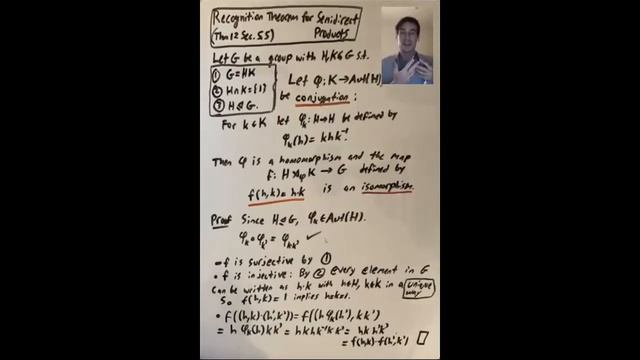 Recognition Theorem for Semidirect
(Thm 12 Sec. 5.5) Products
Let G be a group with H, K ≤ G s.t.
① G = HK
② H∩K = {1}
③ H ⊴ G.
Let φ: K → Aut(H)
be conjugation:
For k ∈ K let φ_k: H → H be defined by
φ_k(h) = k h k⁻¹.
Then φ is a homomorphism and the map
f: H ⋊_φ K → G defined by
f(h,k) = h·k is an isomorphism.
Proof Since H ⊴ G, φ_k ∈ Aut(H).
φ_k ∘ φ_k' = φ_kk' ✓
• f is surjective by ①
• f is injective: By ② every element in G
can be written as h·k with h∈H, k∈K in a unique
way
So f(h,k) = 1 implies h=k=1.
• f((h,k)·(h',k')) = f((h φ_k(h'), kk')
= h φ_k(h') k k' = h k h' k⁻¹ k k' = h k h' k'
= f(h,k)·f(h',k') □